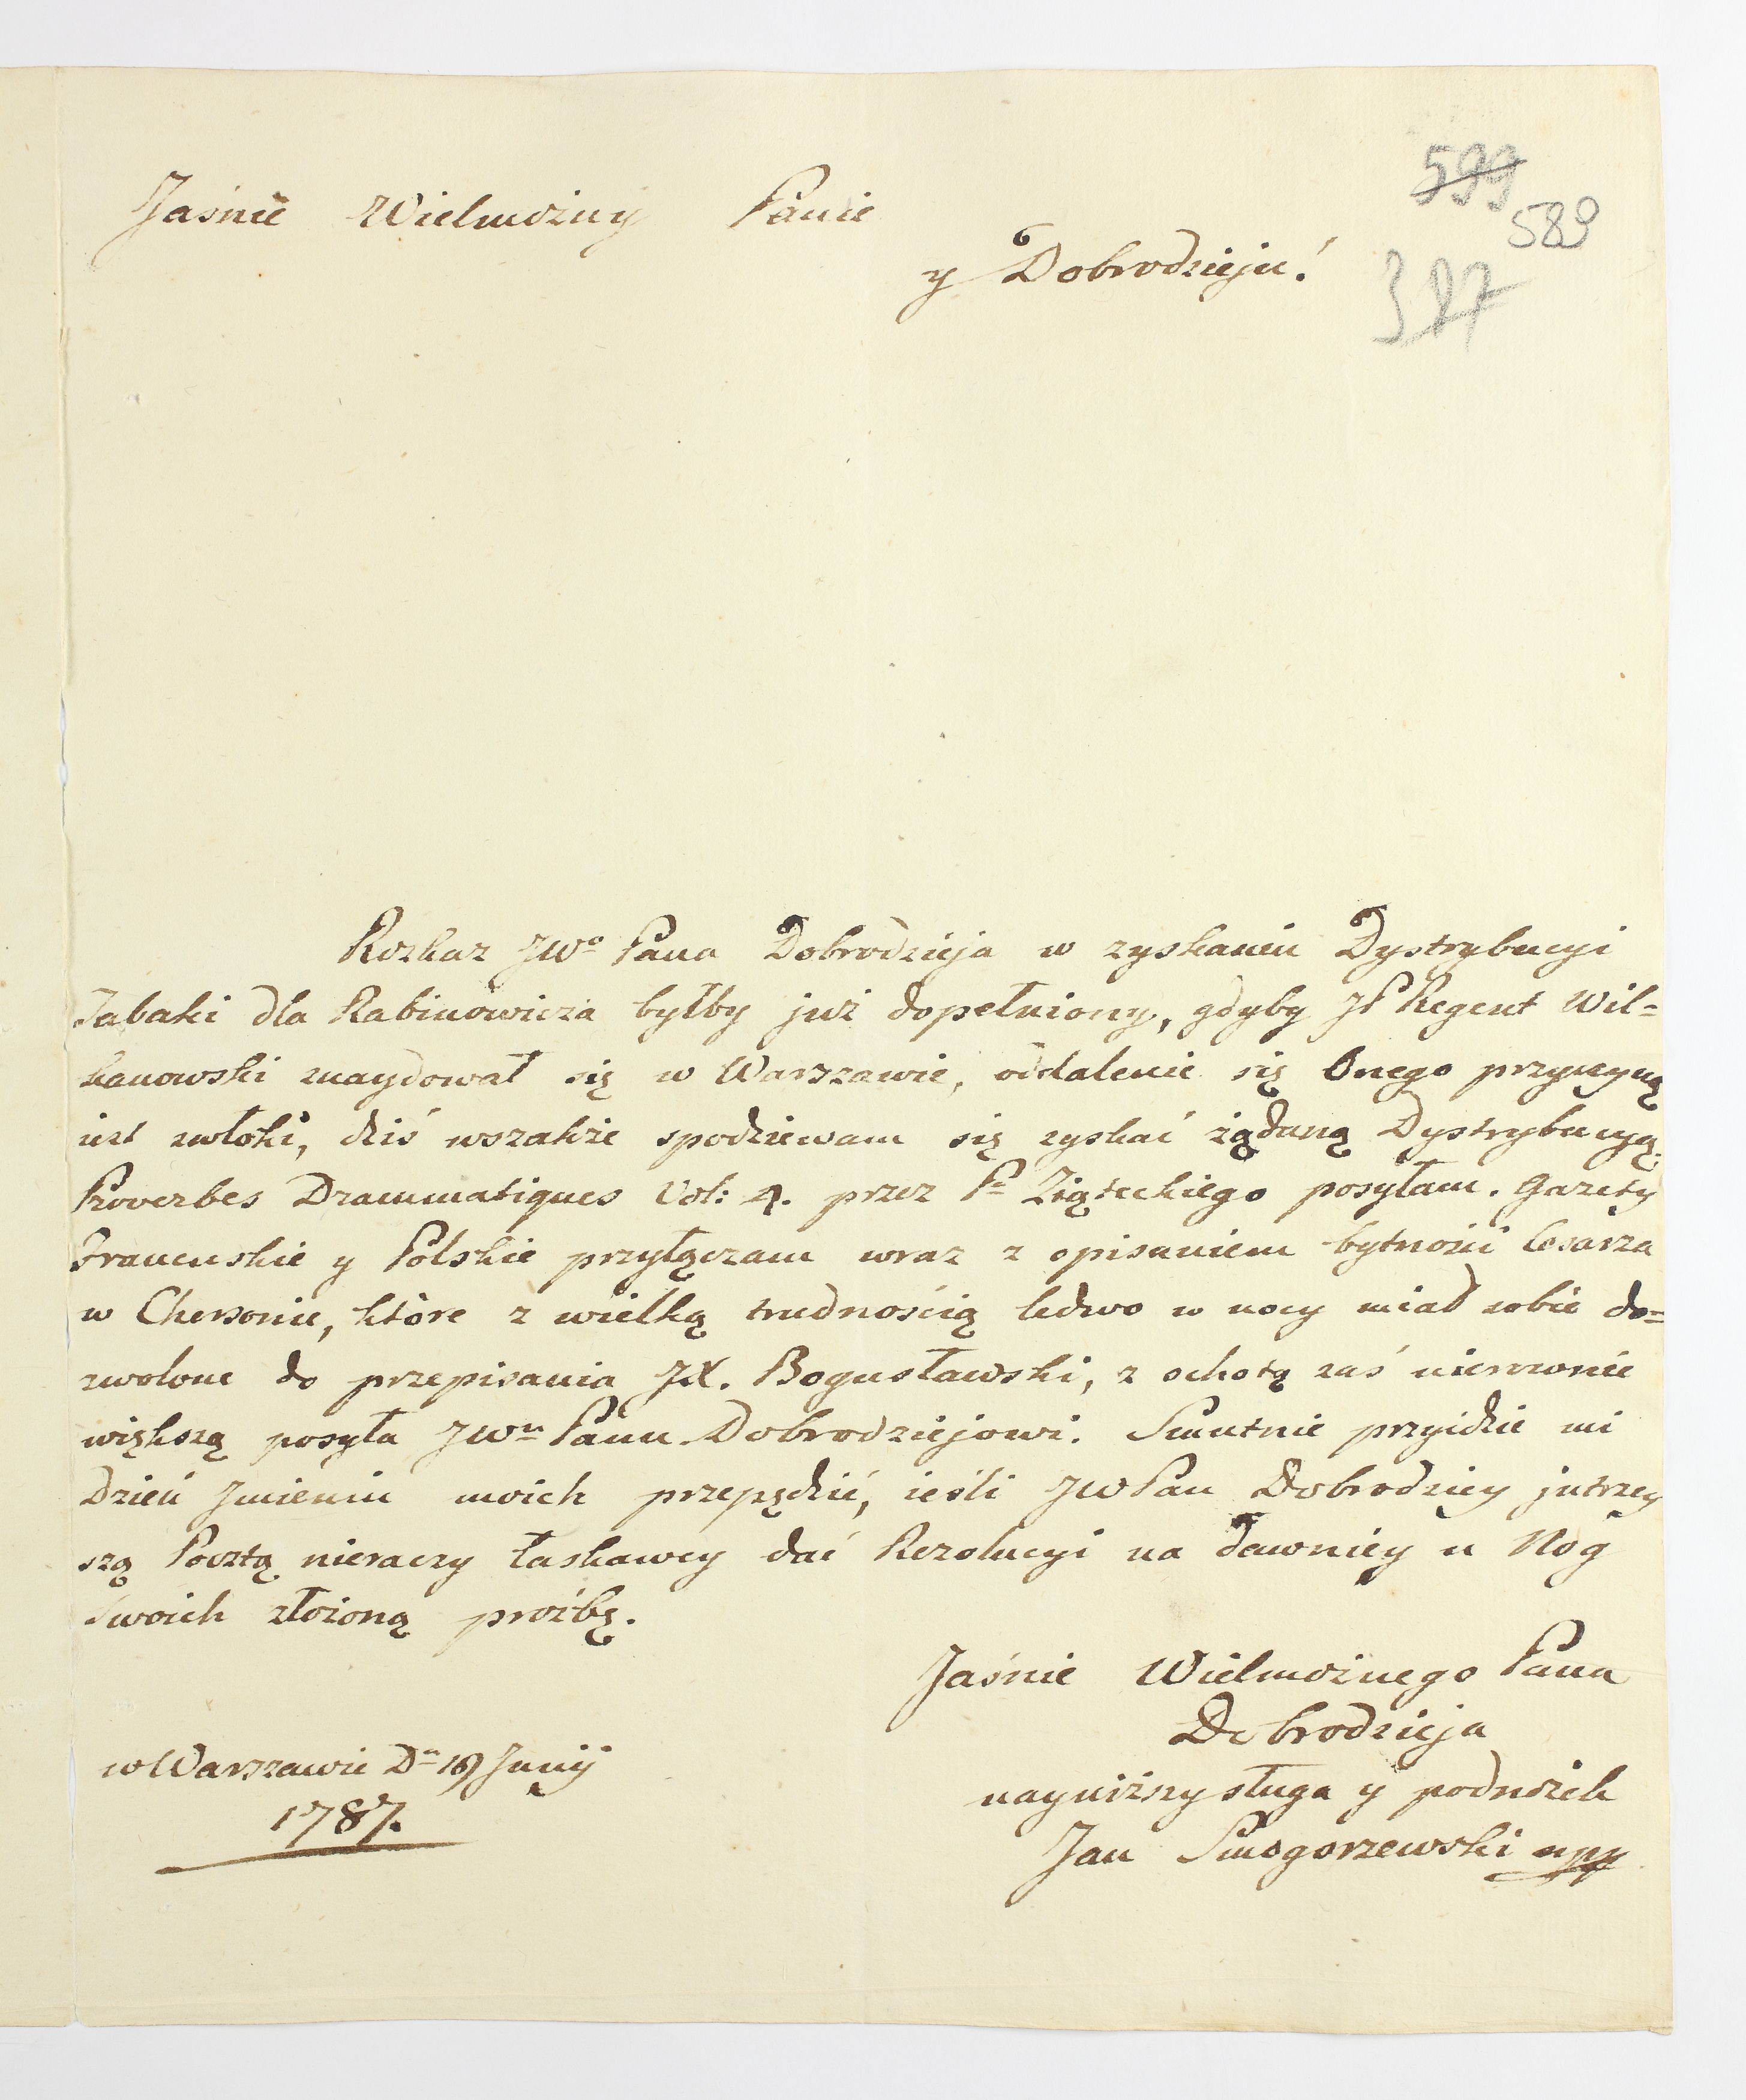 599
Jaśnie Wielmożny Panie
589
y Dobrodzieju!
327
Rozkaz JWo Pana Dobrodzieja w zyskaniu Dystrybucyi
Tabaki dla Rabinowicza byłby już dopełniony, gdyby JP Regent Wil=
kanowski znaydował się w Warszawie, oddalenie się Onego przyczyną
iest zwłoki, dziś wszakże spodziewam się zyskać żądaną Dystrybucyą.
Proverbes Drammatiques Vol: 4. przez Pa Ziąteckiego posyłam. Gazety
Francuskie y Polskie przyłączam wraz z opisaniem bytności Cesarza
w Chersonie, które z wielką trudnością ledwo w nocy miał sobie do=
zwolone do przepisania JX. Bogusławski, z ochotą zaś nierownie
większą posyła JWu Panu Dobrodziejowi. Smutnie przyidzie mi
Dzień Jmienin moich przepędzić, ieśli JWPan Dobrodziey jutrzey
szą Pocztą nieraczy łaskawey dać Rezolucyi na dawniey u Nog
Swoich złożoną proźbę.
Jaśnie Wielmożnego Pana
Dobrodzieja
w Warszawie Da 19 Junij
nayniższy sługa y podnożek
1787.
Jan Smogorzewski mpp